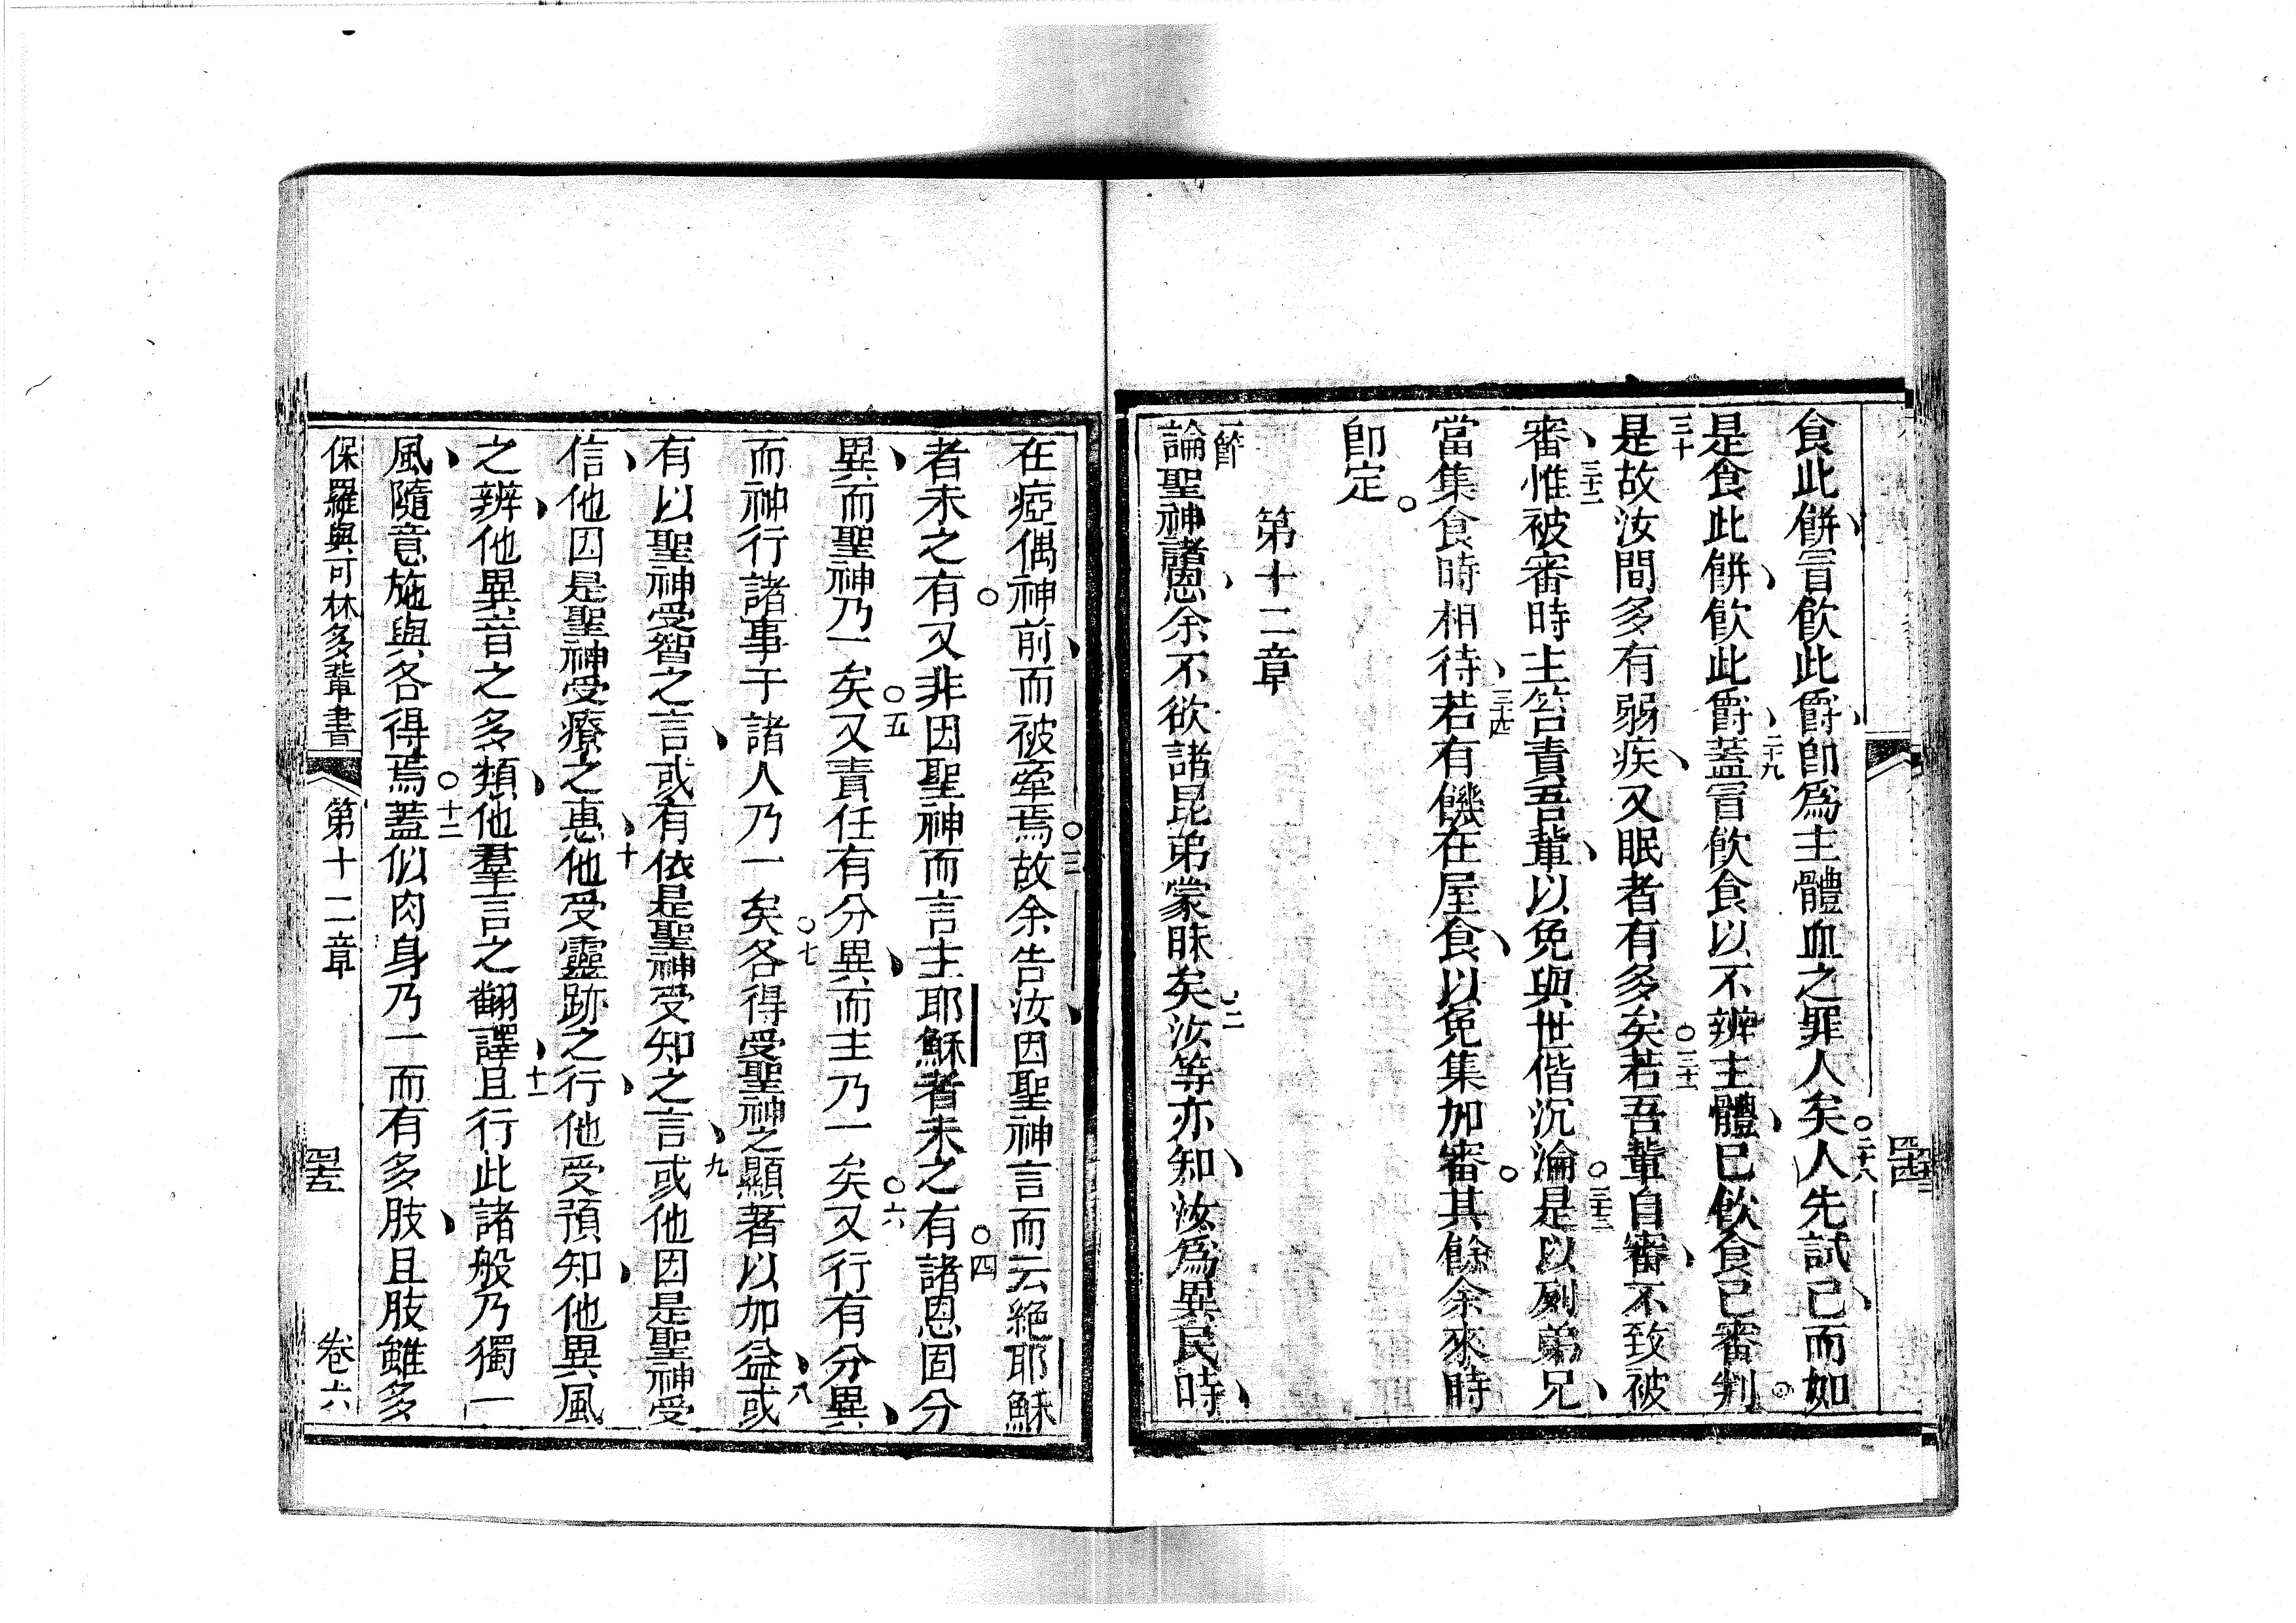 食此餅、冒飲此爵、卽爲主體血之罪人矣。二十八人先試己、而如
是食此餅、飲此爵、二十九蓋冒飲食以不辨主體、已飲食己審判。
三十是故汝間多有弱疾、又眠者有多矣。三十一若吾輩自審、不致被
審、三十二惟被審時主笞責吾輩、以免與世偕沉淪。三十三是以列弟兄、
當集食時相待、三十四若有饑在屋食、以免集加審。其餘余來時
卽定。
第十二章
一節論聖神諸恩、余不欲諸昆弟蒙昧矣、二汝等亦知、汝爲異民時、
在瘂偶神前、而被牽焉。三故余告汝、因聖神言而云絕耶穌
者未之有。又非因聖神而言主耶穌者未之有。四諸恩固分
異、而聖神乃一矣。五又責任有分異、而主乃一矣。六又行有分異、
而神行諸事于諸人乃一矣。七各得受聖神之顯著以加益、八或
有以聖神受智之言、或有依是聖神受知之言、九或他因是聖神受
信、他因是聖神受療之惠、十他受靈跡之行、他受預知、他異風
之辨、他異音之多類、他羣言之翻譯、十一且行此諸般乃獨一
風、隨意施與各得焉。十二蓋似肉身乃一而有多肢、且肢雖多
保羅與可林多輩書 第十二章 卷六